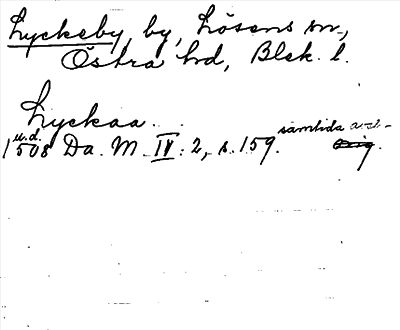 Lyckeby, by, Lösens sn,
Östra hd, Blek. l.
Lyckaa
u.d.
1508 Da. M. IV: 2, s. 159. samtida avskr.
Orig.